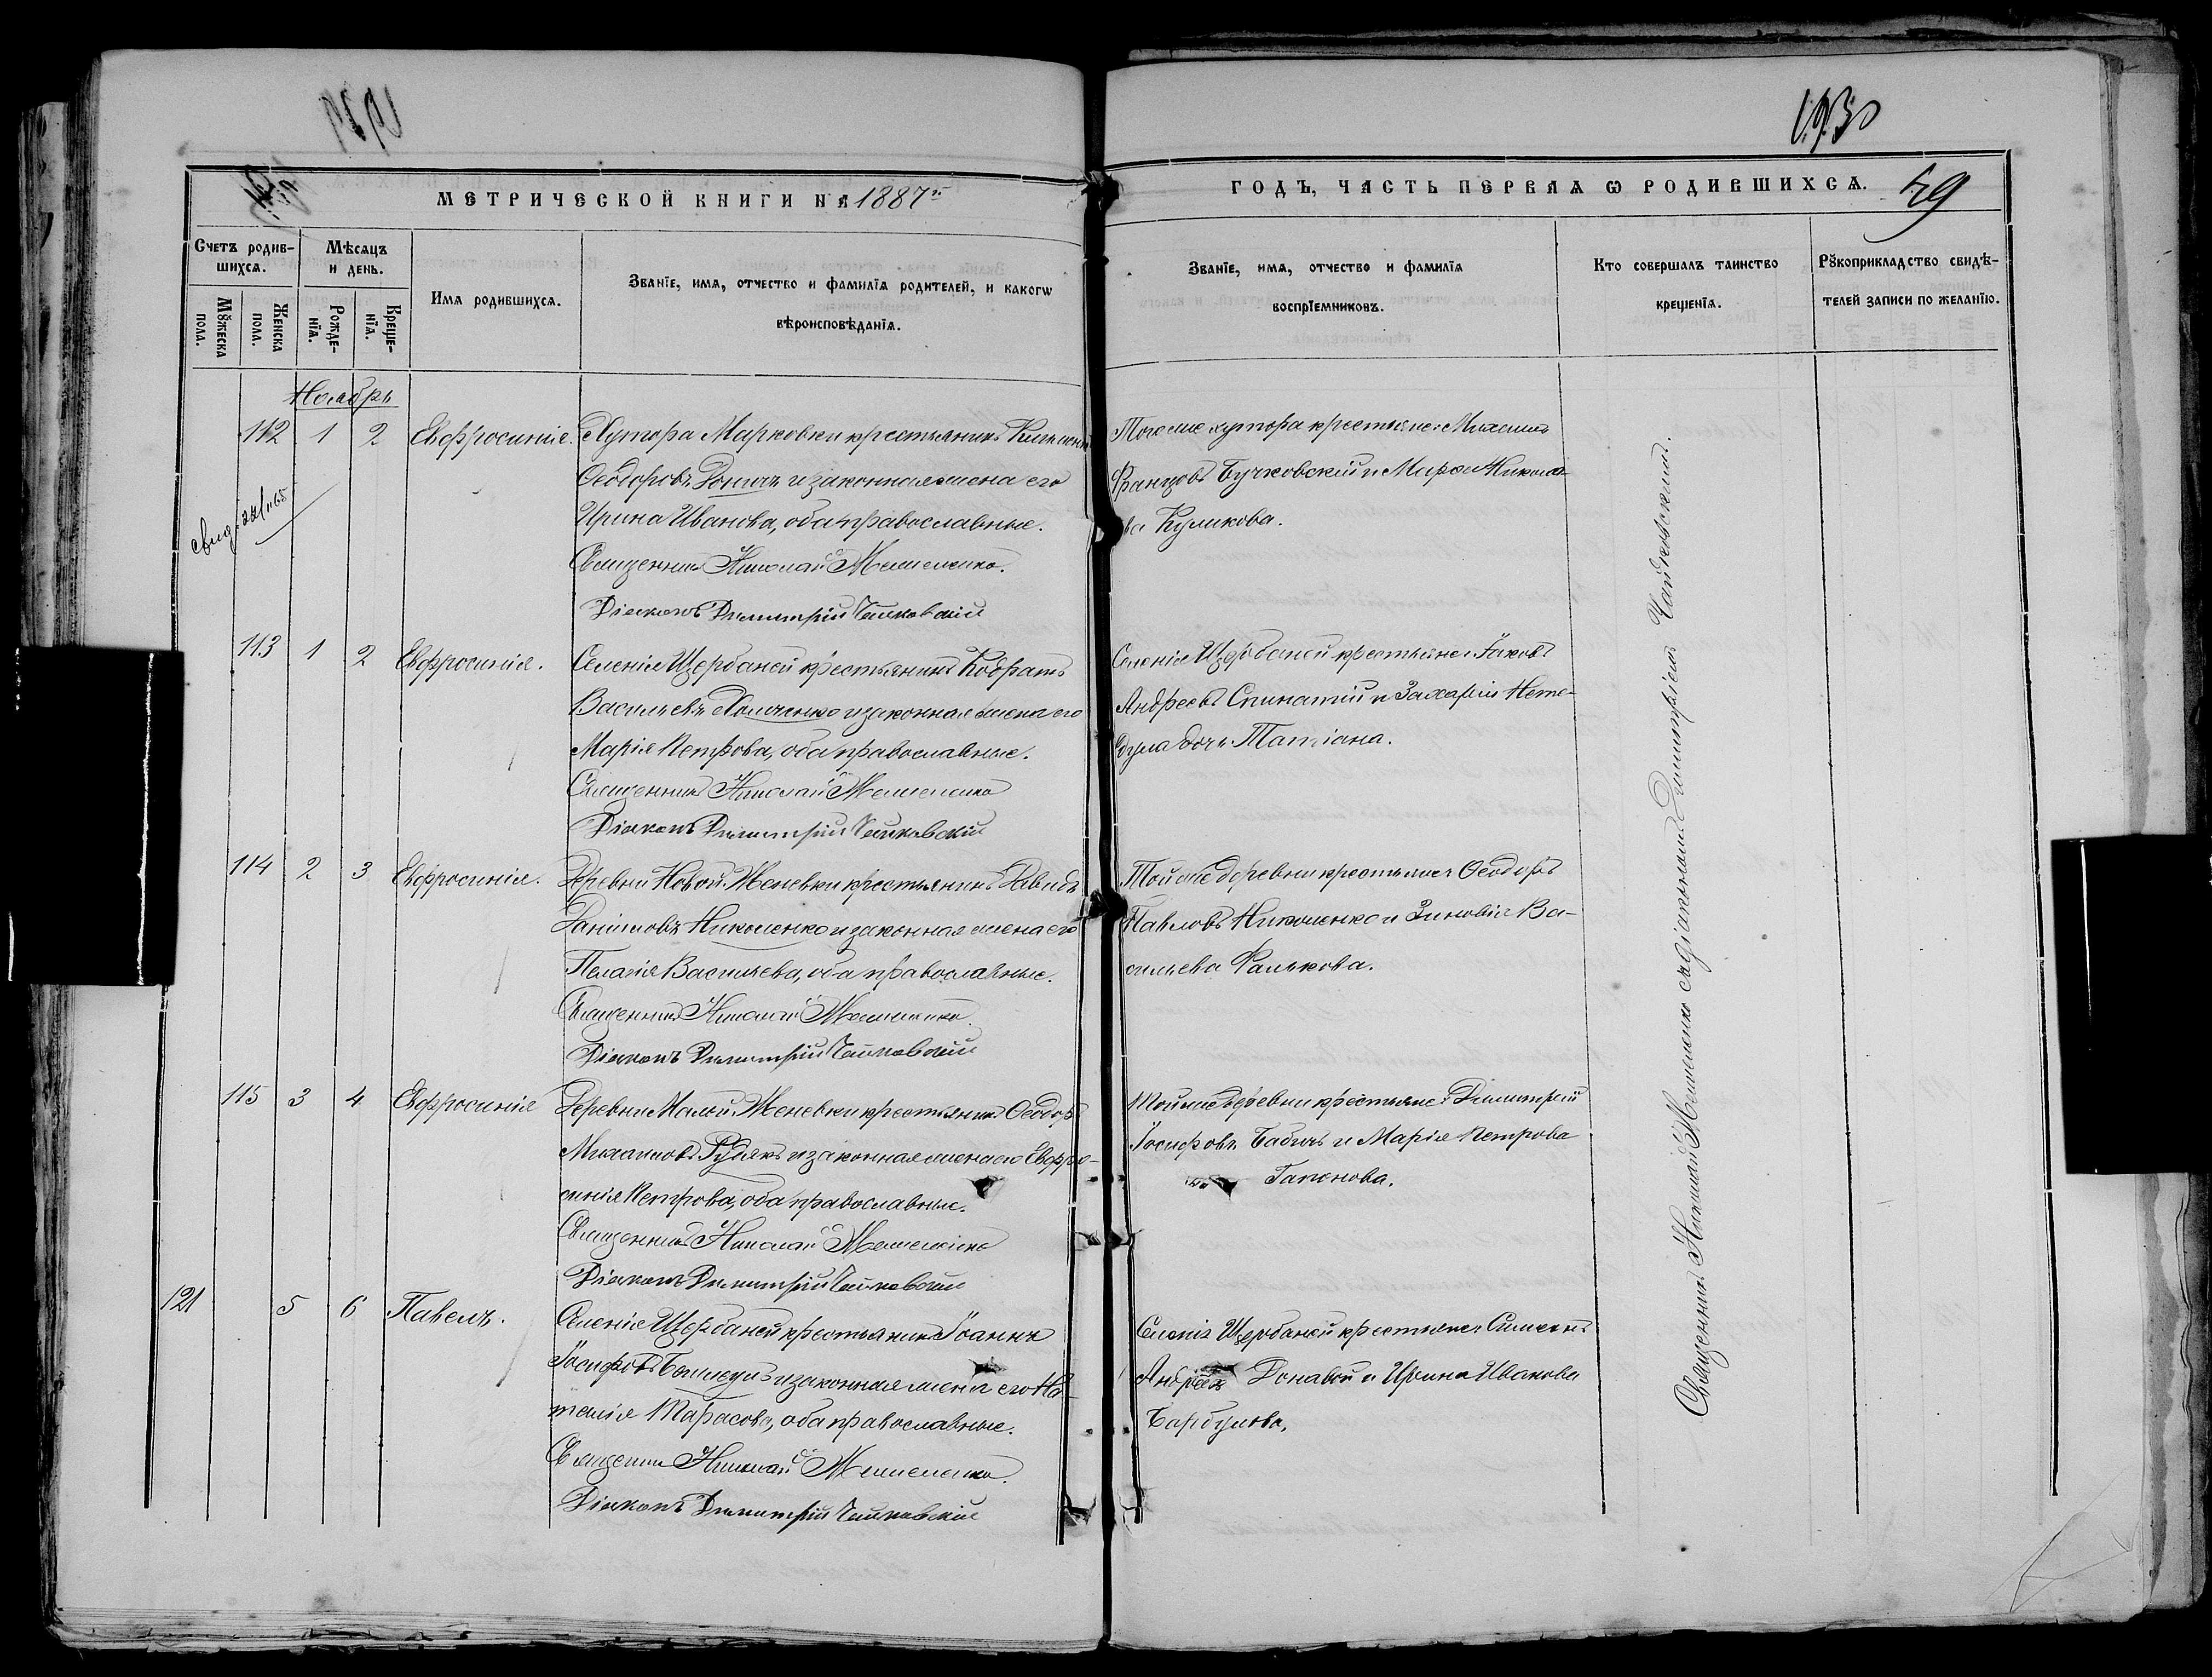 1930
МЕТРИЧЕСКОЙ КНИГИ НА 1887й
ГОДЪ, ЧАСТЬ ПЕРВАѦ Ѡ РОДИВШИХСѦ. 49
Счетъ родив-
шихсѧ.
Мѣсѧцъ
и день.
Мꙋжеска
пола.
Женска
пола.
Рожде-
нїѧ.
Креще-
нїѧ.
Имѧ родившихсѧ.
Званїе, имѧ, отчество и фамилїѧ родителей, и какогѡ
вѣроисповѣданїѧ.
Званїе, имѧ, отчество и фамилїѧ
воспрїемниковъ.
Кто совершалъ таинство
крещенїѧ.
Рꙋкоприкладство свидѣ-
телей записи по желанїю.
Ноябрь
112 1 2 Евфросинія. Хутора Марковки крестьянинъ
Ѳеодоровъ и законная жена его
Ирина Иванова, оба православные.
Священникъ Николай Мешененко.
Діаконъ Димитрій Чайковскій
Того же хутора крестьяне: Михаилъ
Францовъ Бучковскій и Марѳа Никола-
ва Куликова.
113 1 2 Евфросинія. Селенія Щербаней крестьянинъ Кодратъ
Васильевъ и законная жена его
Марія Петрова, оба православные.
Священникъ Николай Мешененко
Діаконъ Димитрій Чайковскій
Селенія Щербаней крестьяне: Іаковъ
Андреевъ Спинатій и Захарія Нете-
дула дочь Татіана.
114 2 3 Евфросинія. Деревни Новой Женевки крестьянинъ Давидъ
Даніиловъ Николенко и законная жена его
Пелагія Васильева, оба православные.
Священникъ Николай Мешененко.
Діаконъ Димитрій Чайковскій
Той же деревни крестьяне: Ѳеодоръ
Павловъ Николенко и Зиновія Ва-
сильева Фалькова.
115 3 4 Евфросинія Деревни Малой Женевки крестьянинъ Ѳеодоръ
Михаиловъ и законная жена его Евфро-
синія Петрова, оба православные.
Священникъ Николай Мешененко
Діаконъ Димитрій Чайковскій
Той же деревни крестьяне: Димитрій
Іосифовъ Бабичъ и Марія Петрова
Гапонова.
121 5 6 Павелъ. Селенія Щербаней крестьянинъ Іоаннъ
Іосифовъ и законная жена его На-
талія Тарасова, оба православные.
Священникъ Николай Мешененко.
Діаконъ Димитрій Чайковскій
Селенія Щербаней крестьяне: Симеонъ
Андреевъ Донавой и Ирина Иванова
Барбулова.
Священникъ Николай Мешененко съ діакономъ Димитріемъ Чайковскимъ.